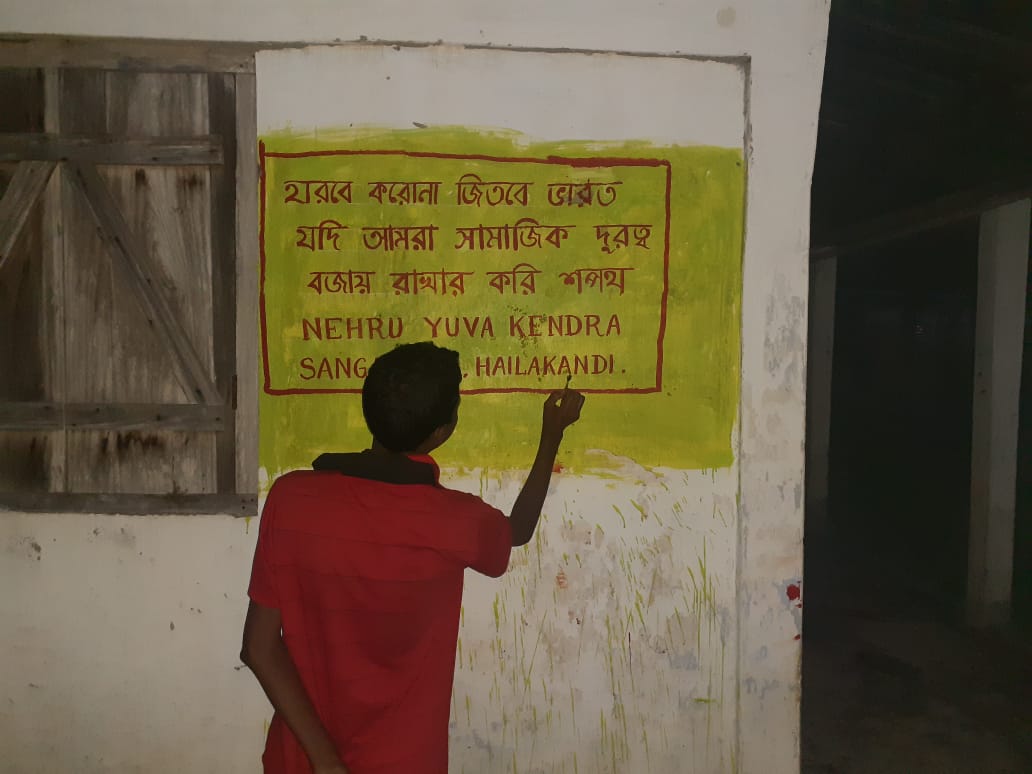 হারবে করোনা জিতবে ভারত
যদি আমরা সামাজিক দূরত্ব
বজায় রাখার করি শপথ
NEHRU YUVA KENDRA
HAILAKANDI.